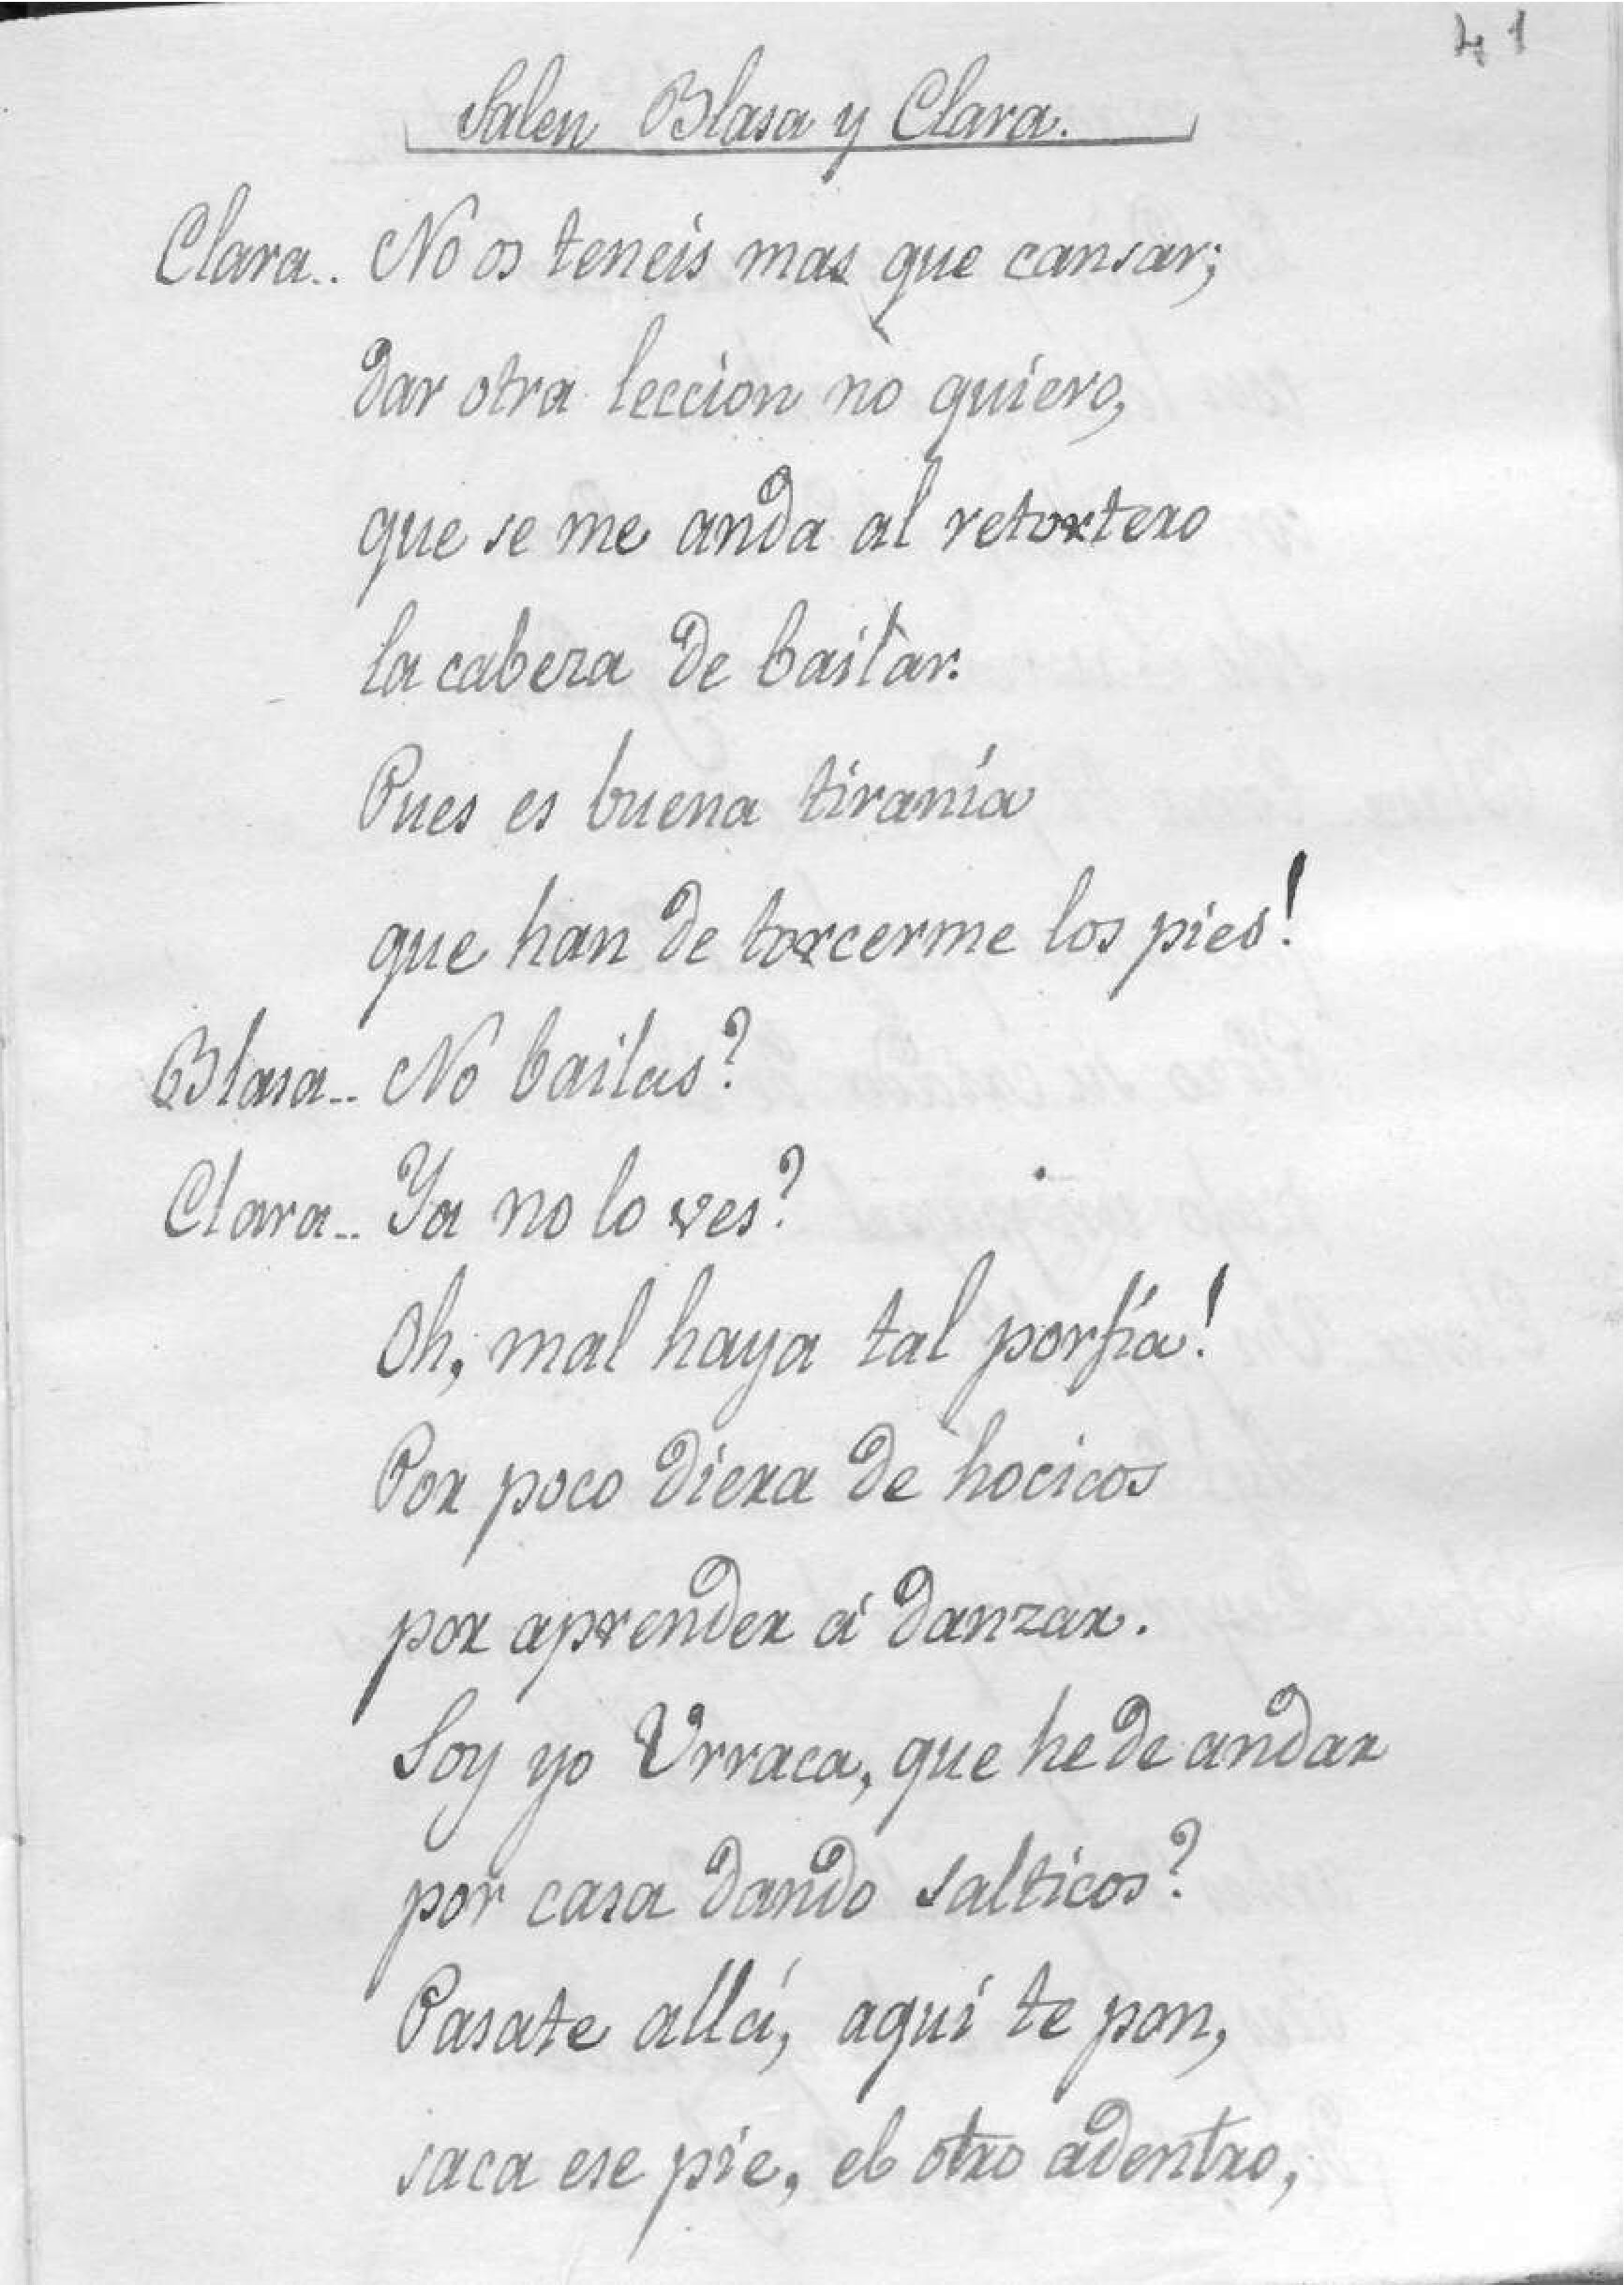 41
Salen Blasa y Clara.
Clara.. No os teneis mas que cansar;
dar otra leccion no quiero,
que se me anda al retortero
la cabeza de bailar.
Pues es buena tiranía
que han de torcerme los pies!
Blasa.. No bailas?
Clara.. Ya no lo ves?
Oh, mal haya tal porfía!
Por poco diera de hocicos
por aprender á danzar.
Soy yo Urraca, que he de andar
por casa dando salticos?
Pasate allá, aquí te pon,
saca ese pie, el otro adentro,